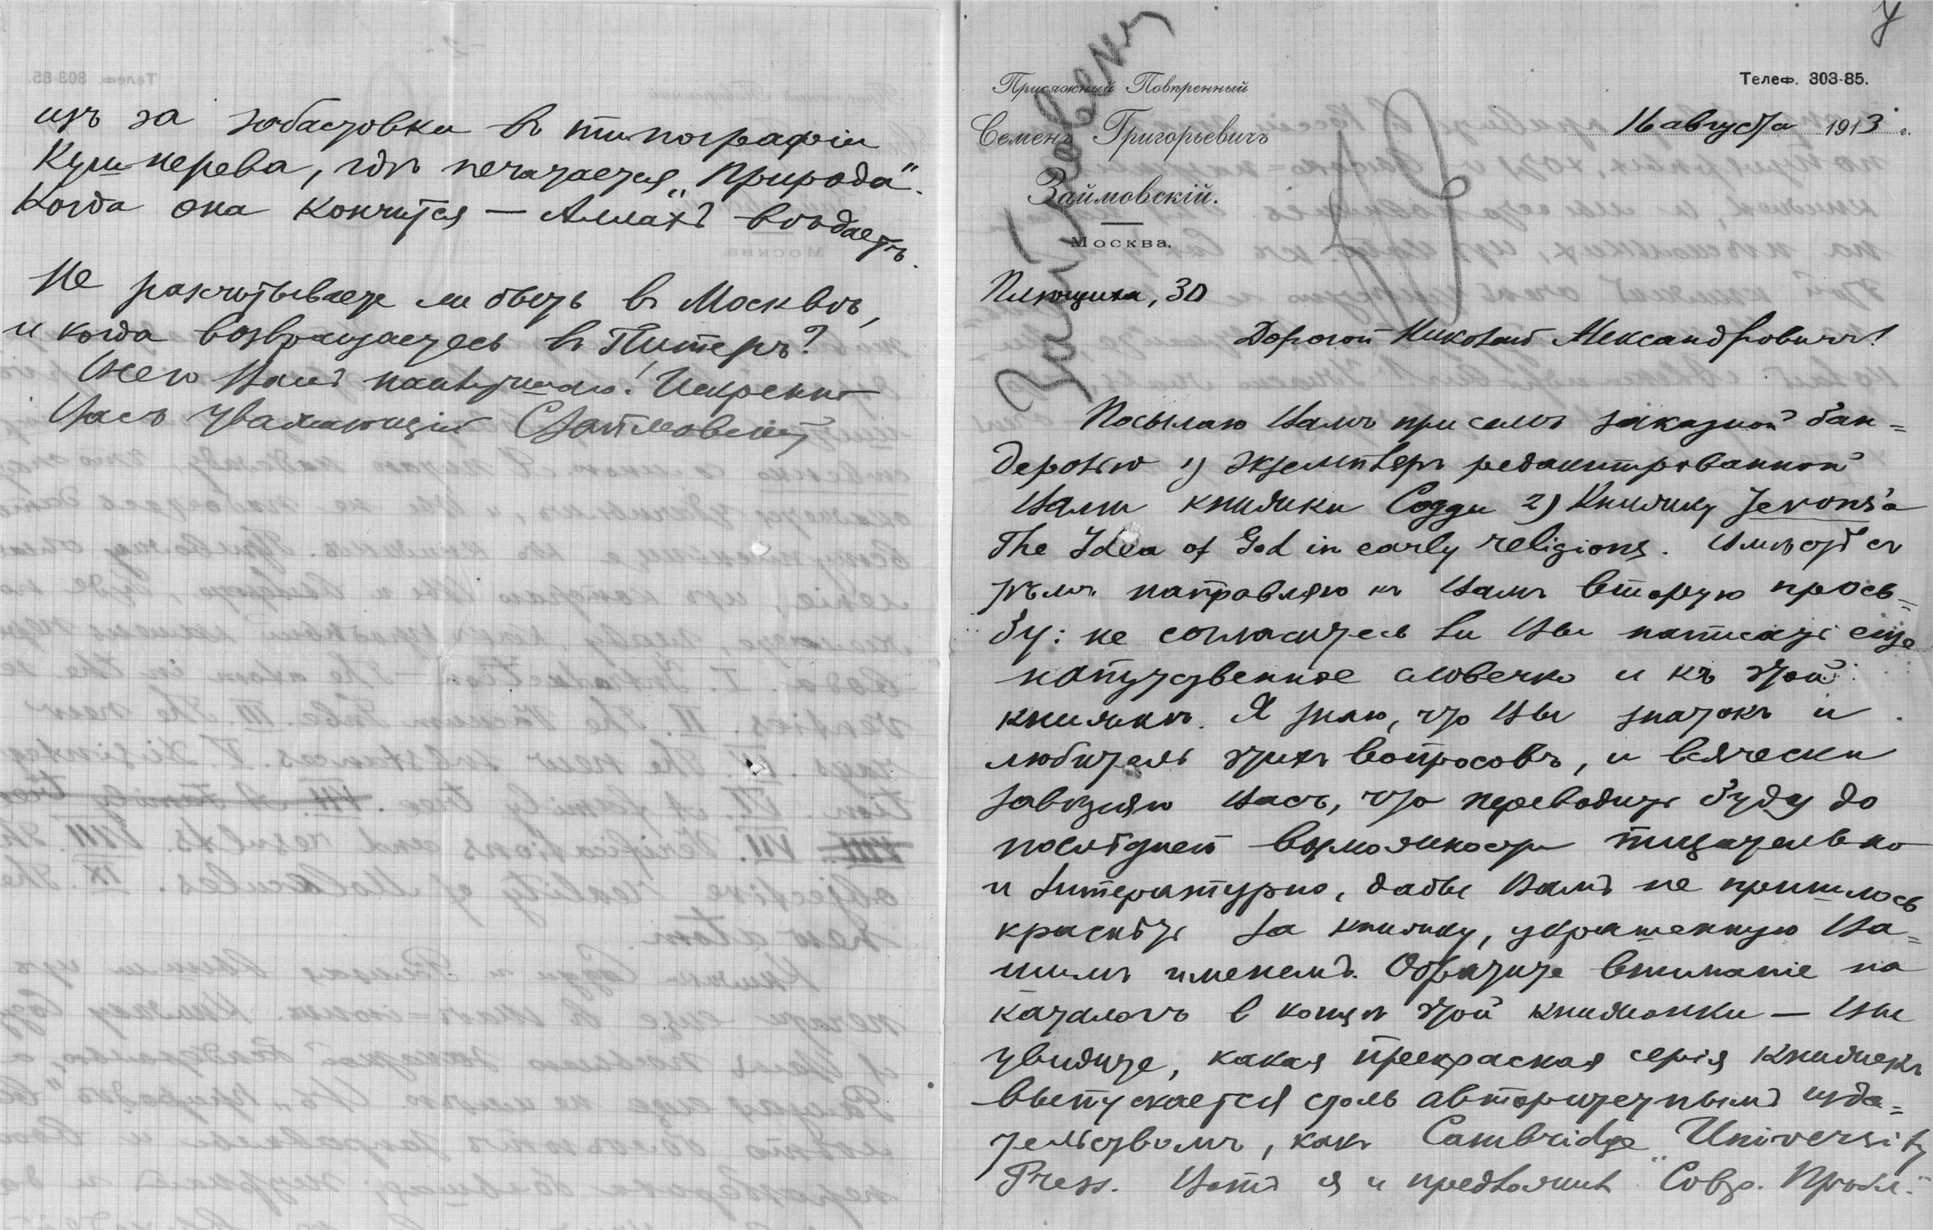 Телеф. 303-85.
Присяжный Повѣренный
Семенъ Григорьевичъ
Займовскій.
Москва.
16 августа 1913 г.
Займовский
Плющиха, 30
Дорогой Николай Александровичъ!
Посылаю Вамъ при семъ заказной бан=
деролью 1) экземпляръ редактированной
Вами книжки Содди 2) Книжку Jevons'a
The Idea of God in early religions. Вмѣстѣ съ
тѣмъ направляю къ Вамъ вторую прось=
бу: не согласитесь ли Вы написать еще
напутственное словечко и къ этой
книжкѣ. Я знаю, что Вы знатокъ и
любитель этихъ вопросовъ, и всячески
завѣряю Васъ, что переводить буду до
послѣдней возможности тщательно
и литературно, дабы Вамъ не пришлось
краснѣть за книжку, украшенную Ва=
шимъ именемъ. Обратите вниманіе на
каталогъ в концѣ этой книжонки — Вы
увидите, какая прекрасная серія книжекъ
выпускается столь авторитетнымъ изда=
тельствомъ, какъ Cambridge University
Press. Вотъ я и предложилъ "Совр. Пробл."
изъ за забастовки въ типографіи
Кушнерева, гдѣ печатается "Природа".
Когда она кончится — Аллахъ вѣдаетъ.
Не расчитываете ли быть въ Москвѣ,
и когда возвращаетесь въ Питеръ?
Всего Вамъ наилучшаго! Искренно
Васъ уважающій СЗаймовскій